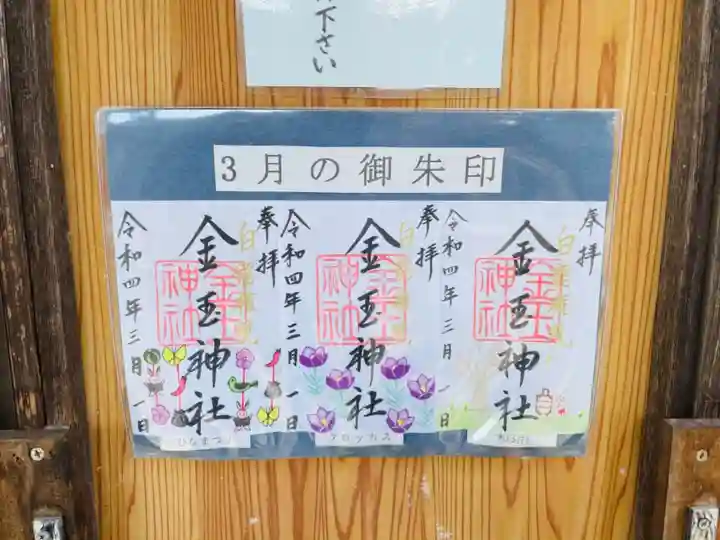 下さい
3月の御朱印
奉拝
金玉神社
令和四年三月一日
ひなまつり
奉拝
金玉神社
令和四年三月一日
クロッカス
奉拝
金玉神社
令和四年三月一日